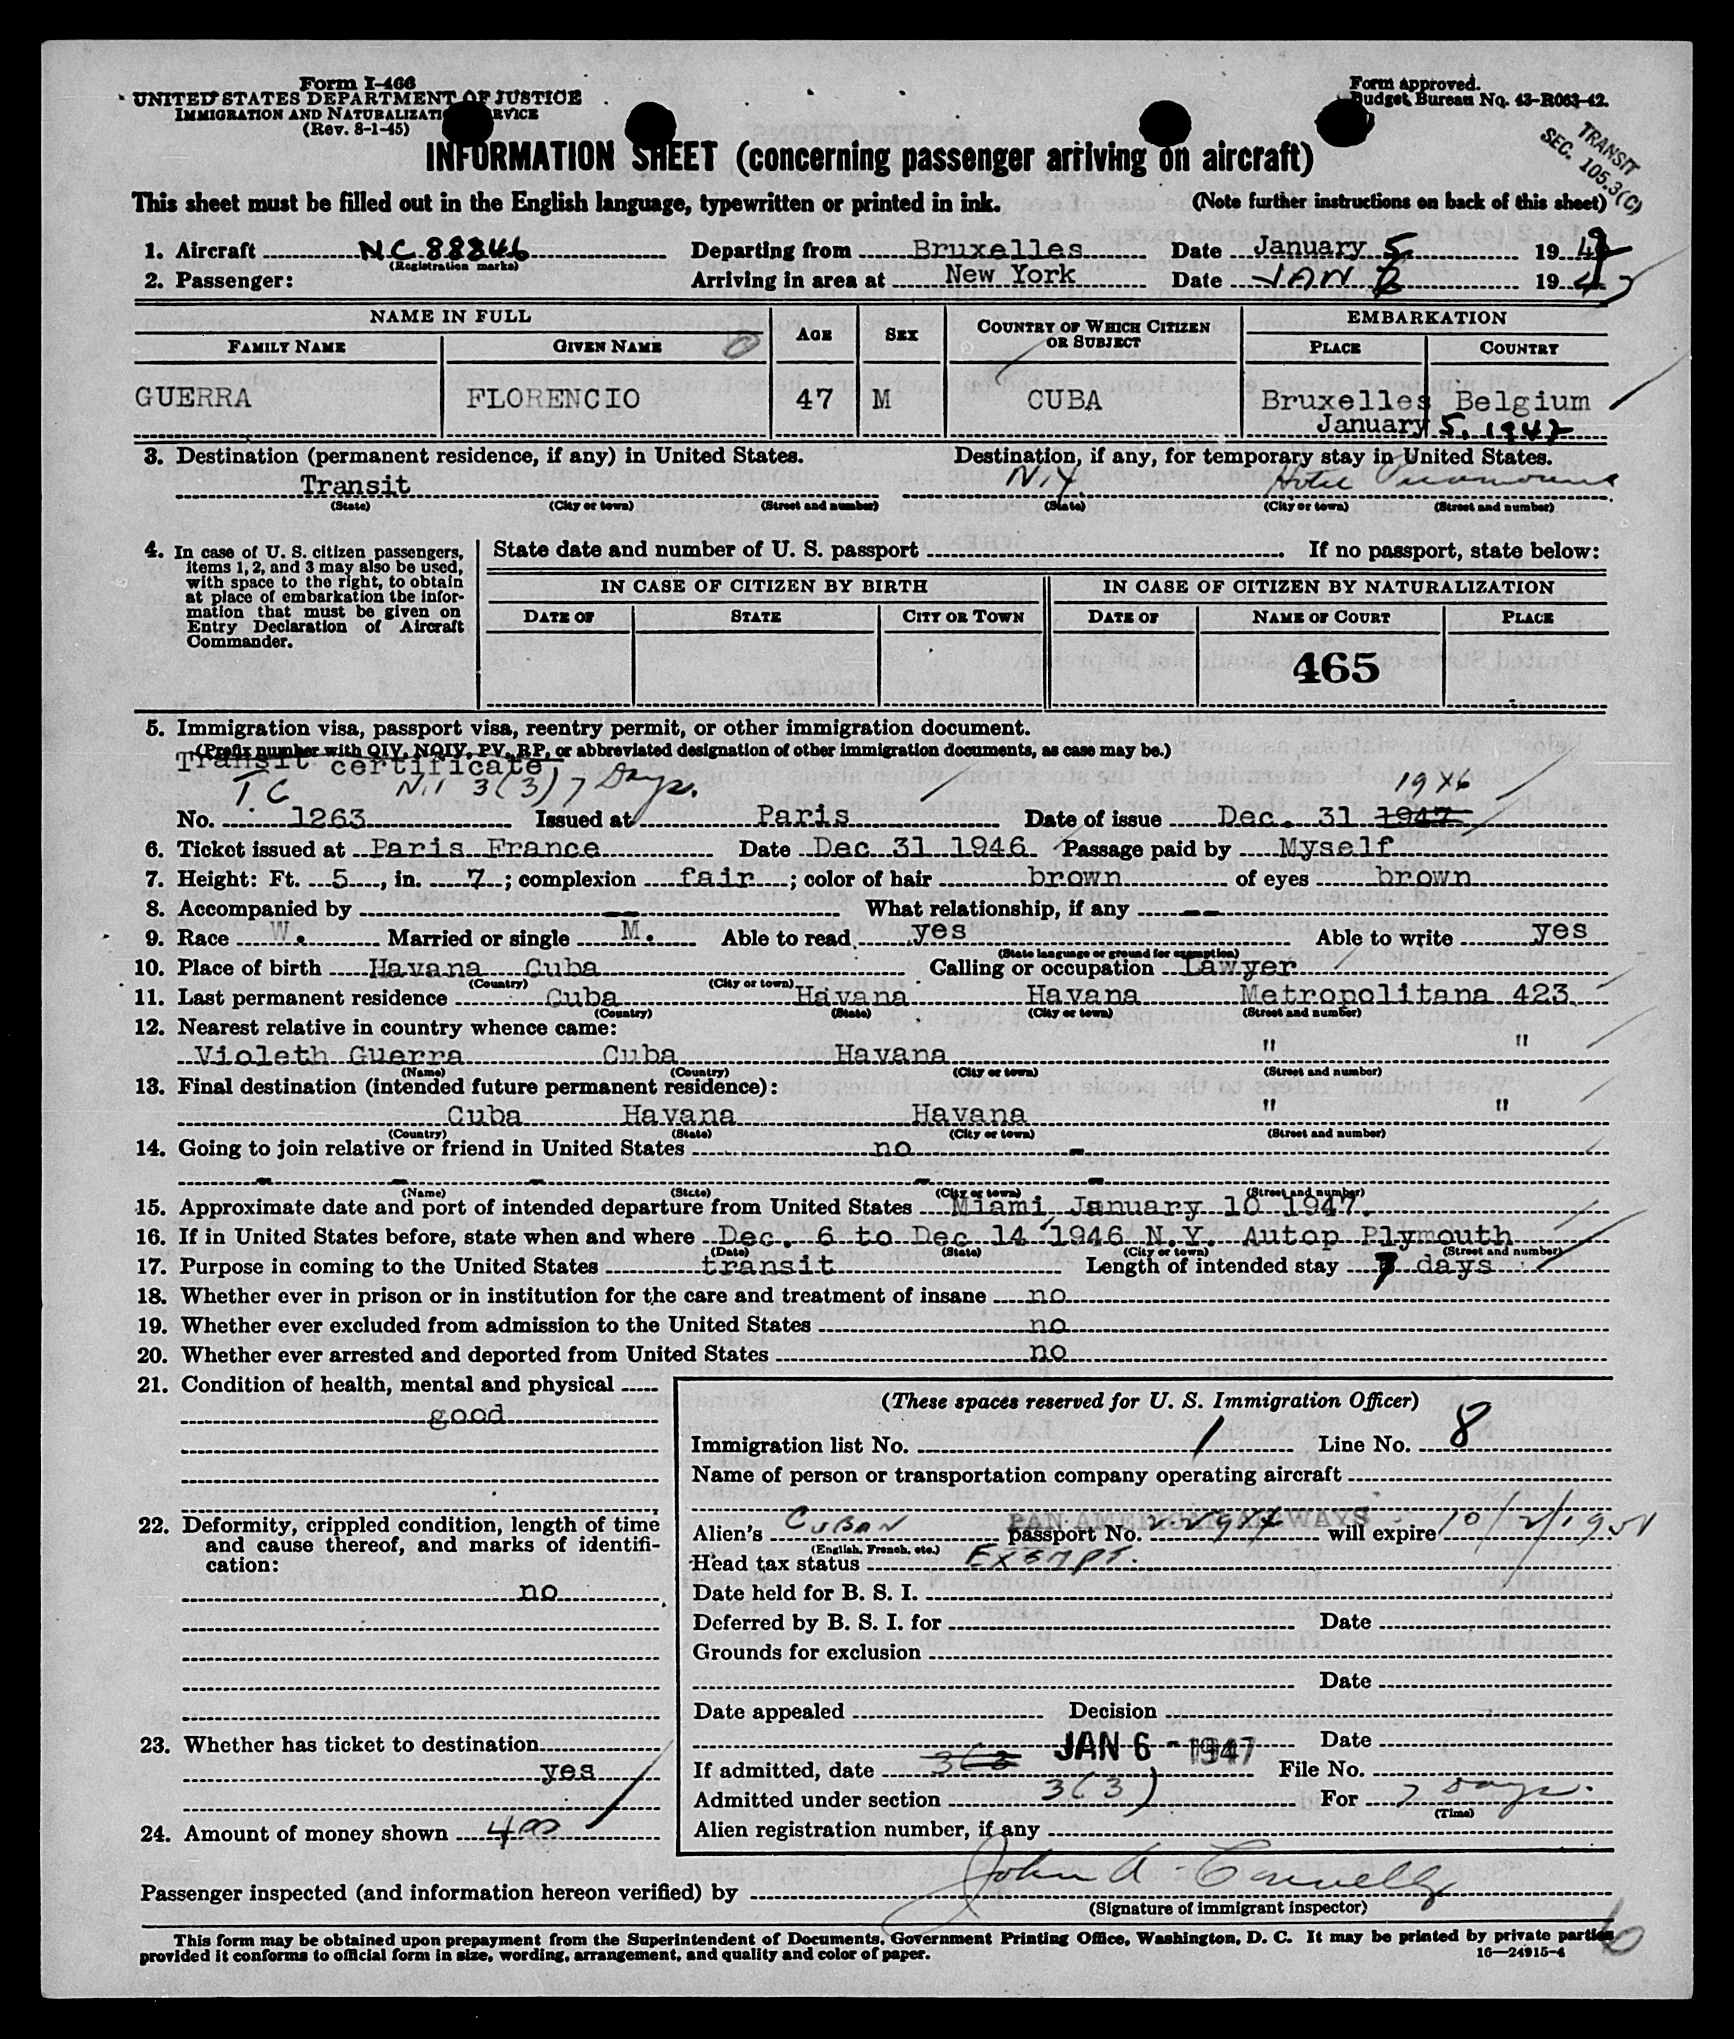 Form I-466
UNITED STATES DEPARTMENT OF JUSTICE
IMMIGRATION AND NATURALIZATION SERVICE
(Rev. 8-1-45)
Form approved.
Budget Bureau No. 43-R063-42.
TRANSIT
SEC. 105.3(C)
INFORMATION SHEET (concerning passenger arriving on aircraft)
This sheet must be filled out in the English language, typewritten or printed in ink. (Note further instructions on back of this sheet)
1. Aircraft NC 88846 Departing from Bruxelles Date January 5 19 47
(Registration marks)
2. Passenger: Arriving in area at New York Date JAN 6 19 47
NAME IN FULL AGE SEX COUNTRY OF WHICH CITIZEN OR SUBJECT EMBARKATION
FAMILY NAME GIVEN NAME PLACE COUNTRY
GUERRA FLORENCIO 47 M CUBA Bruxelles Belgium
January 5, 1947
3. Destination (permanent residence, if any) in United States. Destination, if any, for temporary stay in United States.
Transit N.Y. Hotel Paramount
(State) (City or town) (Street and number) (State) (City or town) (Street and number)
4. In case of U. S. citizen passengers, items 1, 2, and 3 may also be used, with space to the right, to obtain at place of embarkation the information that must be given on Entry Declaration of Aircraft Commander.
State date and number of U. S. passport If no passport, state below:
IN CASE OF CITIZEN BY BIRTH IN CASE OF CITIZEN BY NATURALIZATION
DATE OF STATE CITY OR TOWN DATE OF NAME OF COURT PLACE
465
5. Immigration visa, passport visa, reentry permit, or other immigration document.
(Prefix number with QIV, NQIV, PV, RP, or abbreviated designation of other immigration documents, as case may be.)
Transit certificate
T.C. 3(3) 7 Days. 1946
No. 1263 Issued at Paris Date of issue Dec. 31 1947
6. Ticket issued at Paris France Date Dec 31 1946 Passage paid by Myself
7. Height: Ft. 5, in. 7; complexion fair; color of hair brown of eyes brown
8. Accompanied by -- What relationship, if any --
9. Race W. Married or single M. Able to read yes Able to write yes
(State language or ground for exemption)
10. Place of birth Havana Cuba Calling or occupation Lawyer
(Country) (City or town)
11. Last permanent residence Cuba Havana Havana Metropolitana 423
(Country) (State) (City or town) (Street and number)
12. Nearest relative in country whence came:
Violeth Guerra Cuba Havana " "
(Name) (Country) (City or town) (Street and number)
13. Final destination (intended future permanent residence):
Cuba Havana Havana " "
(Country) (State) (City or town) (Street and number)
14. Going to join relative or friend in United States no -
- - - - -
(Name) (State) (City or town) (Street and number)
15. Approximate date and port of intended departure from United States Miami January 10 1947.
16. If in United States before, state when and where Dec. 6 to Dec 14 1946 N.Y. Autop Plymouth
(Date) (State) (City or town) (Street and number)
17. Purpose in coming to the United States transit Length of intended stay 7 days
18. Whether ever in prison or in institution for the care and treatment of insane no
19. Whether ever excluded from admission to the United States no
20. Whether ever arrested and deported from United States no
21. Condition of health, mental and physical
good
22. Deformity, crippled condition, length of time and cause thereof, and marks of identification:
no
23. Whether has ticket to destination
yes
24. Amount of money shown 400
(These spaces reserved for U. S. Immigration Officer)
Immigration list No. 1 Line No. 8
Name of person or transportation company operating aircraft
PAN AMERICAN AIRWAYS
Alien's CUBAN passport No. will expire 10/2/1951
(English, French, etc.)
Head tax status EXEMPT.
Date held for B. S. I.
Deferred by B. S. I. for Date
Grounds for exclusion
Date
Date appealed Decision
Date
JAN 6 - 1947
If admitted, date File No.
Admitted under section 3(3) For 7 Days.
(Time)
Alien registration number, if any
Passenger inspected (and information hereon verified) by John A. Connelly
(Signature of immigrant inspector)
This form may be obtained upon prepayment from the Superintendent of Documents, Government Printing Office, Washington, D. C. It may be printed by private parties
provided it conforms to official form in size, wording, arrangement, and quality and color of paper. 16—24915-4